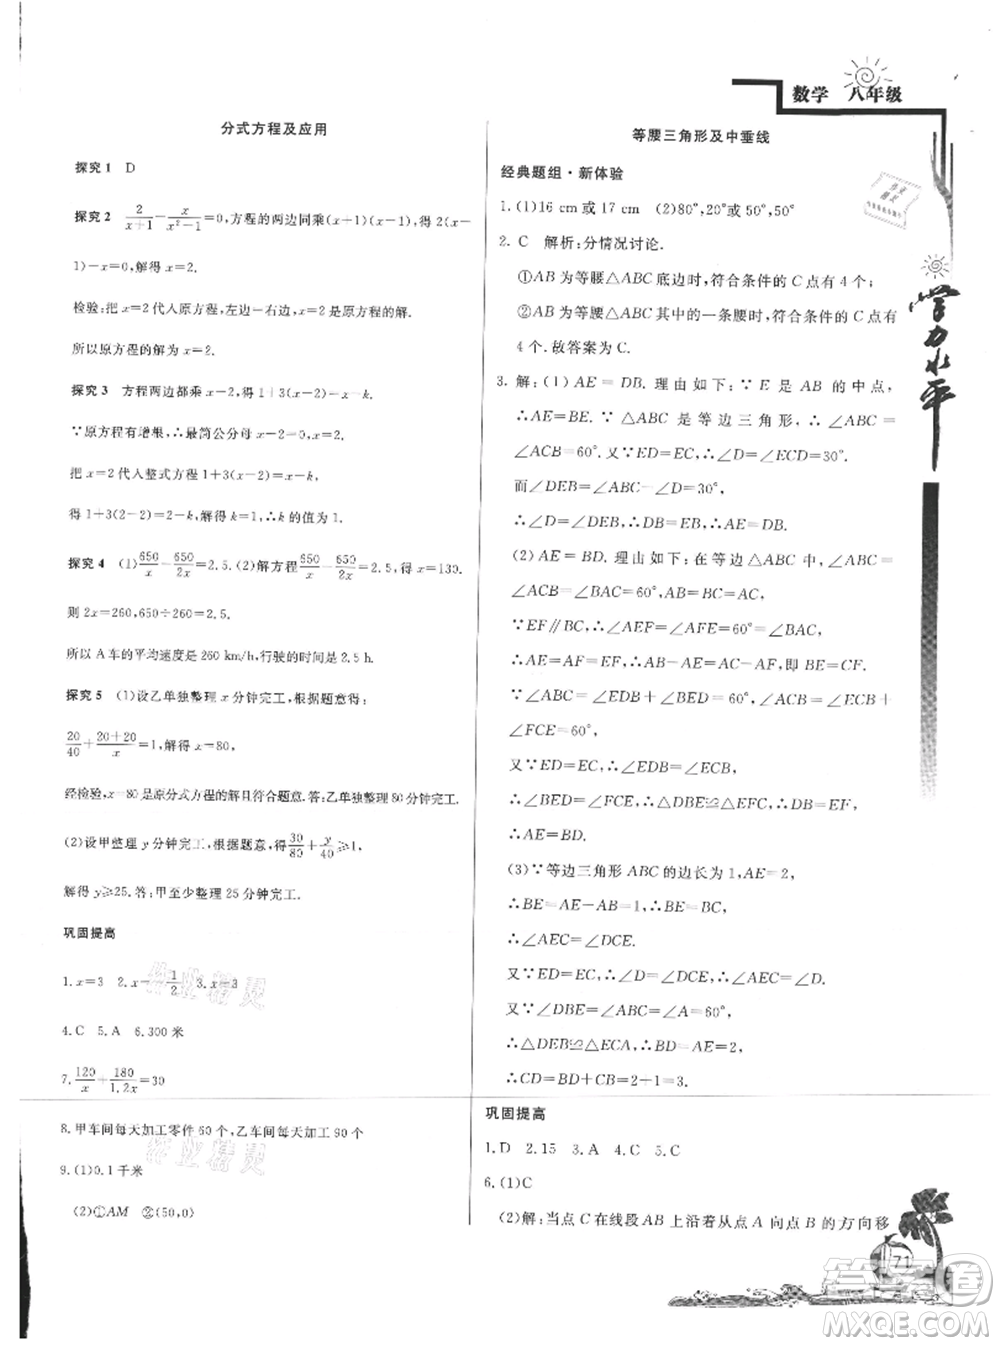 数学 八年级
学力水平
分式方程及应用
探究 1 D
探究 2 2/(x+1)-x/(x²-1)=0,方程的两边同乘(x+1)(x-1),得 2(x-
1)-x=0,解得 x=2.
检验:把 x=2 代入原方程,左边=右边,
所以原方程的解为 x=2.
探究 3 方程两边都乘 x-2,得 1+3(x-2)=x-k,
∵原方程有增根,∴最简公分母 x-2=0,解得 x=2,
把 x=2 代入整式方程 1+3(x-2)=x-k,
得 1+3(2-2)=2-k,解得 k=1,∴k 的值为 1.
探究 4 (1)650/x-650/2x=2.5.(2)解方程650/x-650/2x=2.5,得 x=130.
则 2x=260,650÷260=2.5,
所以 A 车的平均速度是 260 km/h,行驶的时间是 2.5 h.
探究 5 (1)设乙单独整理 x 分钟完工,根据题意得:
20/40+(20+20)/x=1,解得 x=80,
经检验,x=80 是原分式方程的解且符合题意.答:乙单独整理 80 分钟完工.
(2)设甲整理 y 分钟完工,根据题意,得30/80+y/40≥1,
解得 y≥25.答:甲至少整理 25 分钟完工.
巩固提高
1.x=3 2.x=-1/2 3.x=3
4.C 5.A 6.300 米
7.120/x+180/1.2x=30
8.甲车间每天加工零件 60 个,乙车间每天加工 90 个
9.(1)0.1 千米
(2)①AM ②(50,0)
等腰三角形及中垂线
经典题组·新体验
1.(1)16 cm 或 17 cm (2)80°,20°或 50°,50°
2.C 解析:分情况讨论.
①AB 为等腰△ABC 底边时,符合条件的 C 点有 4 个;
②AB 为等腰△ABC 其中的一条腰时,符合条件的 C 点有
4 个.故答案为 C.
3.解:(1)AE=DB.理由如下:∵E 是 AB 的中点,
∴AE=BE.∵△ABC 是等边三角形,∴∠ABC=
∠ACB=60°.又∵ED=EC,∴∠D=∠ECD=30°.
而∠DEB=∠ABC-∠D=30°,
∴∠D=∠DEB,∴DB=EB,∴AE=DB.
(2)AE=BD.理由如下:在等边△ABC 中,∠ABC=
∠ACB=∠BAC=60°,AB=BC=AC,
∵EF∥BC,∴∠AEF=∠AFE=60°=∠BAC,
∴AE=AF=EF,∴AB-AE=AC-AF,即 BE=CF.
∵∠ABC=∠EDB+∠BED=60°,∠ACB=∠ECB+
∠FCE=60°,
又∵ED=EC,∴∠EDB=∠ECB,
∴∠BED=∠FCE,∴△DBE≌△EFC,∴DB=EF,
∴AE=BD.
(3)∵等边三角形 ABC 的边长为 1,AE=2,
∴BE=AE-AB=1=BC,
∴∠AEC=∠DCE.
又∵ED=EC,∴∠D=∠DCE,∴∠AEC=∠D.
又∵∠DBE=∠ABC=∠A=60°,
∴△DEB≌△ECA,∴BD=AE=2,
∴CD=BD+BC=2+1=3.
巩固提高
1.D 2.15 3.A 4.B 5.B
6.(1)C
(2)解:当点 C 在线段 AB 上沿着从点 A 向点 B 的方向移
71
作业精灵
作业精灵
答案圈
MXQE.COM